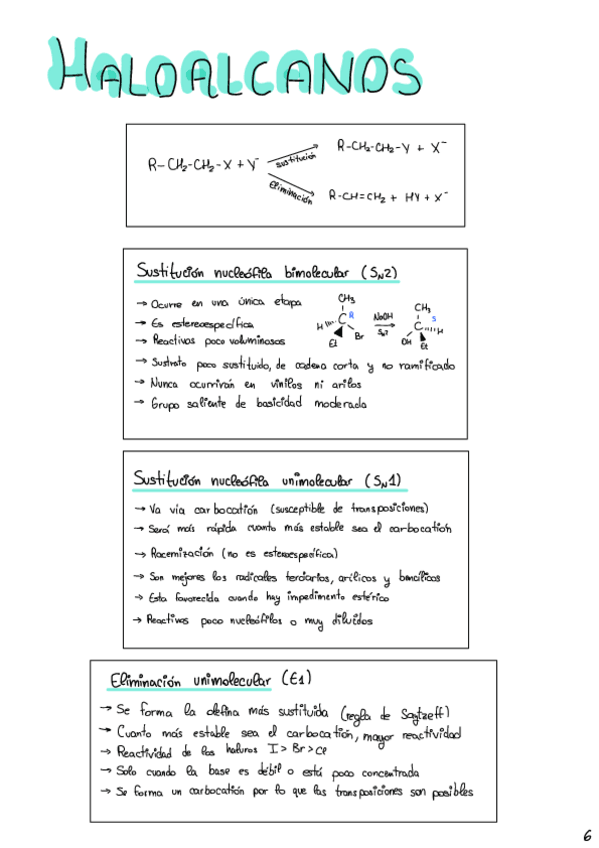 HALOALCANOS
R-CH₂-CH₂-X + Y⁻
sustitución
R-CH₂-CH₂-Y + X⁻
Eliminación
R-CH=CH₂ + HY + X⁻
Sustitución nucleófila bimolecular (SN2)
→ Ocurre en una única etapa
→ Es estereoespecífica
→ Reactivos poco voluminosos
CH₃
C
R
H
Et
Br
NaOH
SN2
CH₃
C
S
H
OH
Et
→ Sustrato poco sustituido, de cadena corta y no ramificado
→ Nunca ocurrirán en vinilos ni arilos
→ Grupo saliente de basicidad moderada
Sustitución nucleófila unimolecular (SN1)
→ Va vía carbocatión (susceptible de transposiciones)
→ Será más rápida cuanto más estable sea el carbocatión
→ Racemización (no es estereoespecífica)
→ Son mejores los radicales terciarios, arílicos y bencílicos
→ Esta favorecida cuando hay impedimento estérico
→ Reactivos poco nucleófilos o muy diluidos
Eliminación unimolecular (E1)
→ Se forma la olefina más sustituida (regla de Saytzeff)
→ Cuanto más estable sea el carbocatión, mayor reactividad
→ Reactividad de los haluros I > Br > Cl
→ Solo cuando la base es débil o está poco concentrada
→ Se forma un carbocatión por lo que las transposiciones son posibles
6